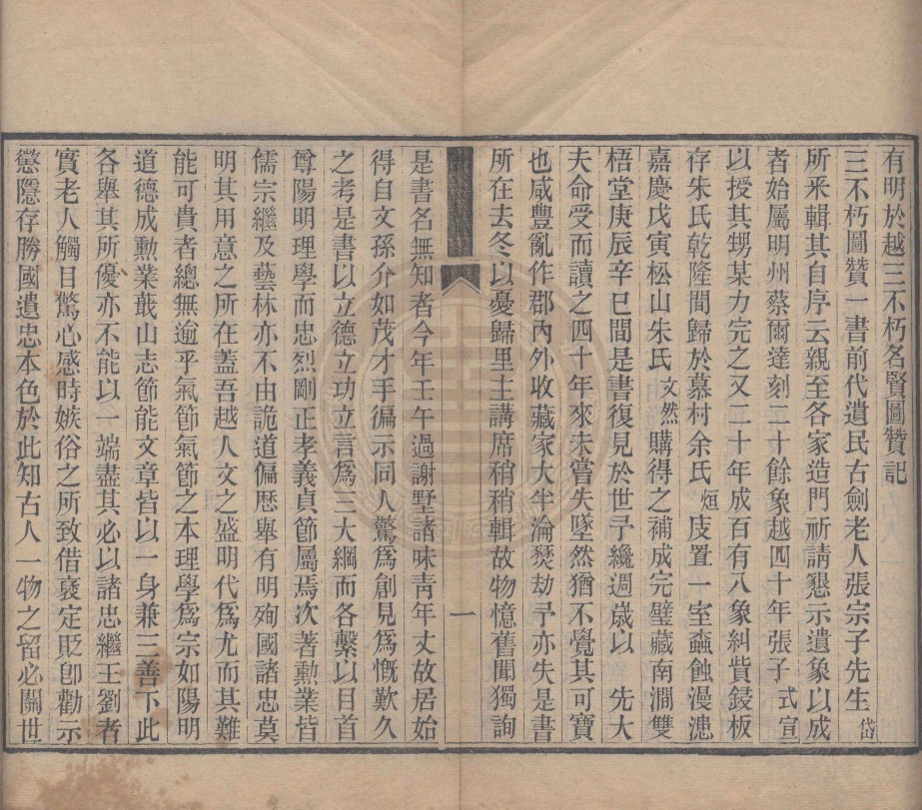 有明於越三不朽名賢圖贊記
三不朽圖贊一書前代遺民古劍老人張宗子先生岱
所釆輯其自序云親至各家造門祈請懇示遺象以成
者始屬明州蔡爾達刻二十餘象越四十年張子式宣
以授其甥某力完之又二十年成百有八象糾貲鋟板
存朱氏乾隆間歸於慕村余氏烜庋置一室蟲蝕漫漶
嘉慶戊寅松山朱氏文然購得之補成完璧藏南澗雙
梧堂庚辰辛巳間是書復見於世予纔週晬以　先大
夫命受而讀之四十年來未嘗失墜然猶不覺其可寶
也咸豐亂作郡內外收藏家大半淪燹劫予亦失是書
所在去冬以憂歸里主講席稍稍輯故物憶舊聞獨詢
一
是書名無知者今年壬午過謝墅諸味靑年丈故居始
得自文孫介如茂才手徧示同人驚爲創見爲慨歎久
之考是書以立德立功立言爲三大綱而各繫以目首
尊陽明理學而忠烈剛正孝義貞節屬焉次著勲業皆
儒宗繼及藝林亦不由詭道偏歴舉有明殉國諸忠莫
明其用意之所在蓋吾越人文之盛明代爲尤而其難
能可貴者總無逾乎氣節氣節之本理學爲宗如陽明
道德成勲業蕺山志節能文章皆以一身兼三善下此
各舉其所優亦不能以一端盡其必以諸忠繼王劉者
實老人觸目驚心感時嫉俗之所致借襃定貶卽勸示
懲隱存勝國遺忠本色於此知古人一物之留必關世